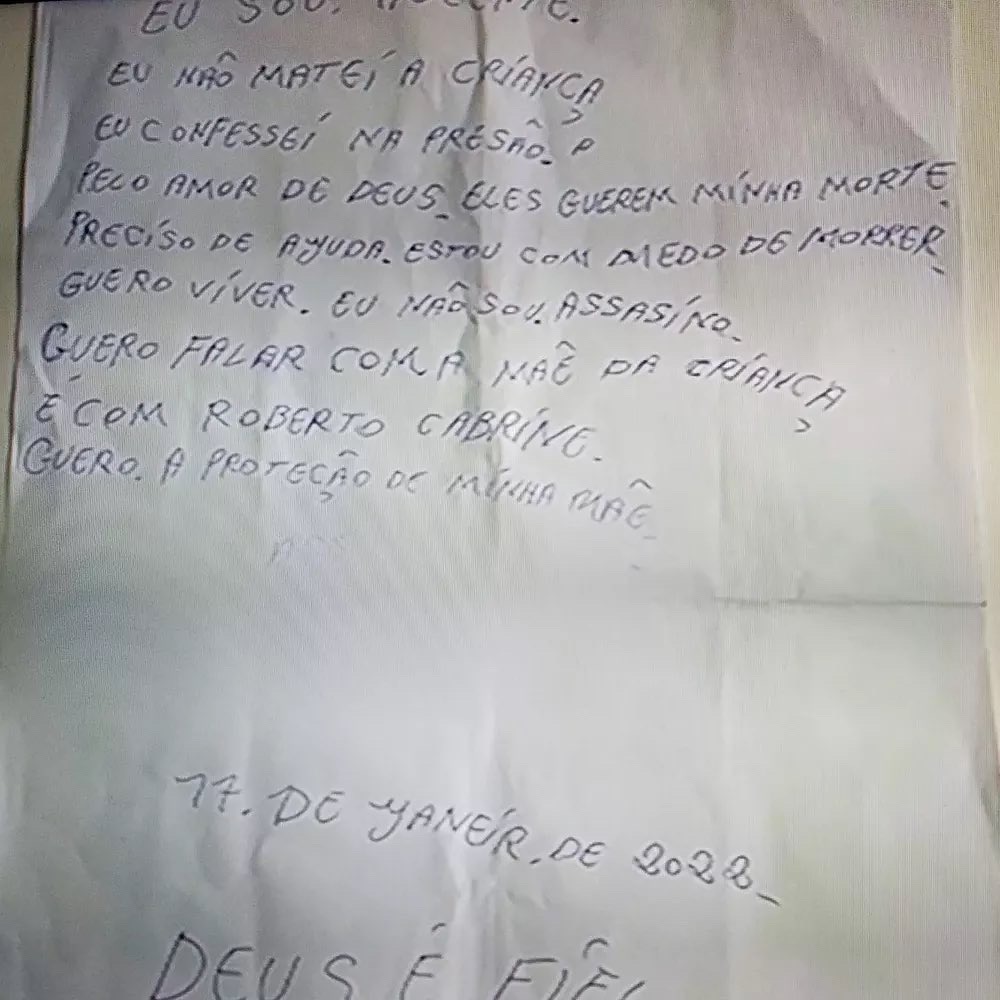 EU SOU.
EU NÃO MATEÍ A CRÍANÇA
EU CONFESSEÍ NA PRESÃO. P
PELO AMOR DE DEUS. ELES GUEREM MÍNHA MORTE.
PRECÍSO DE AYUDA. ESTOU COM MEDO DE MORRER.
GUERO VÍVER. EU NÃO SOU. ASSASÍNO.
GUERO FALAR COM A MÃE DA CRÍANÇA
E COM ROBERTO CABRÍNE.
GUERO. A PROTEÇÃO DE MÍNHA MÃE.
17. DE YANEÍR. DE 2022_
DEUS É FÍEL